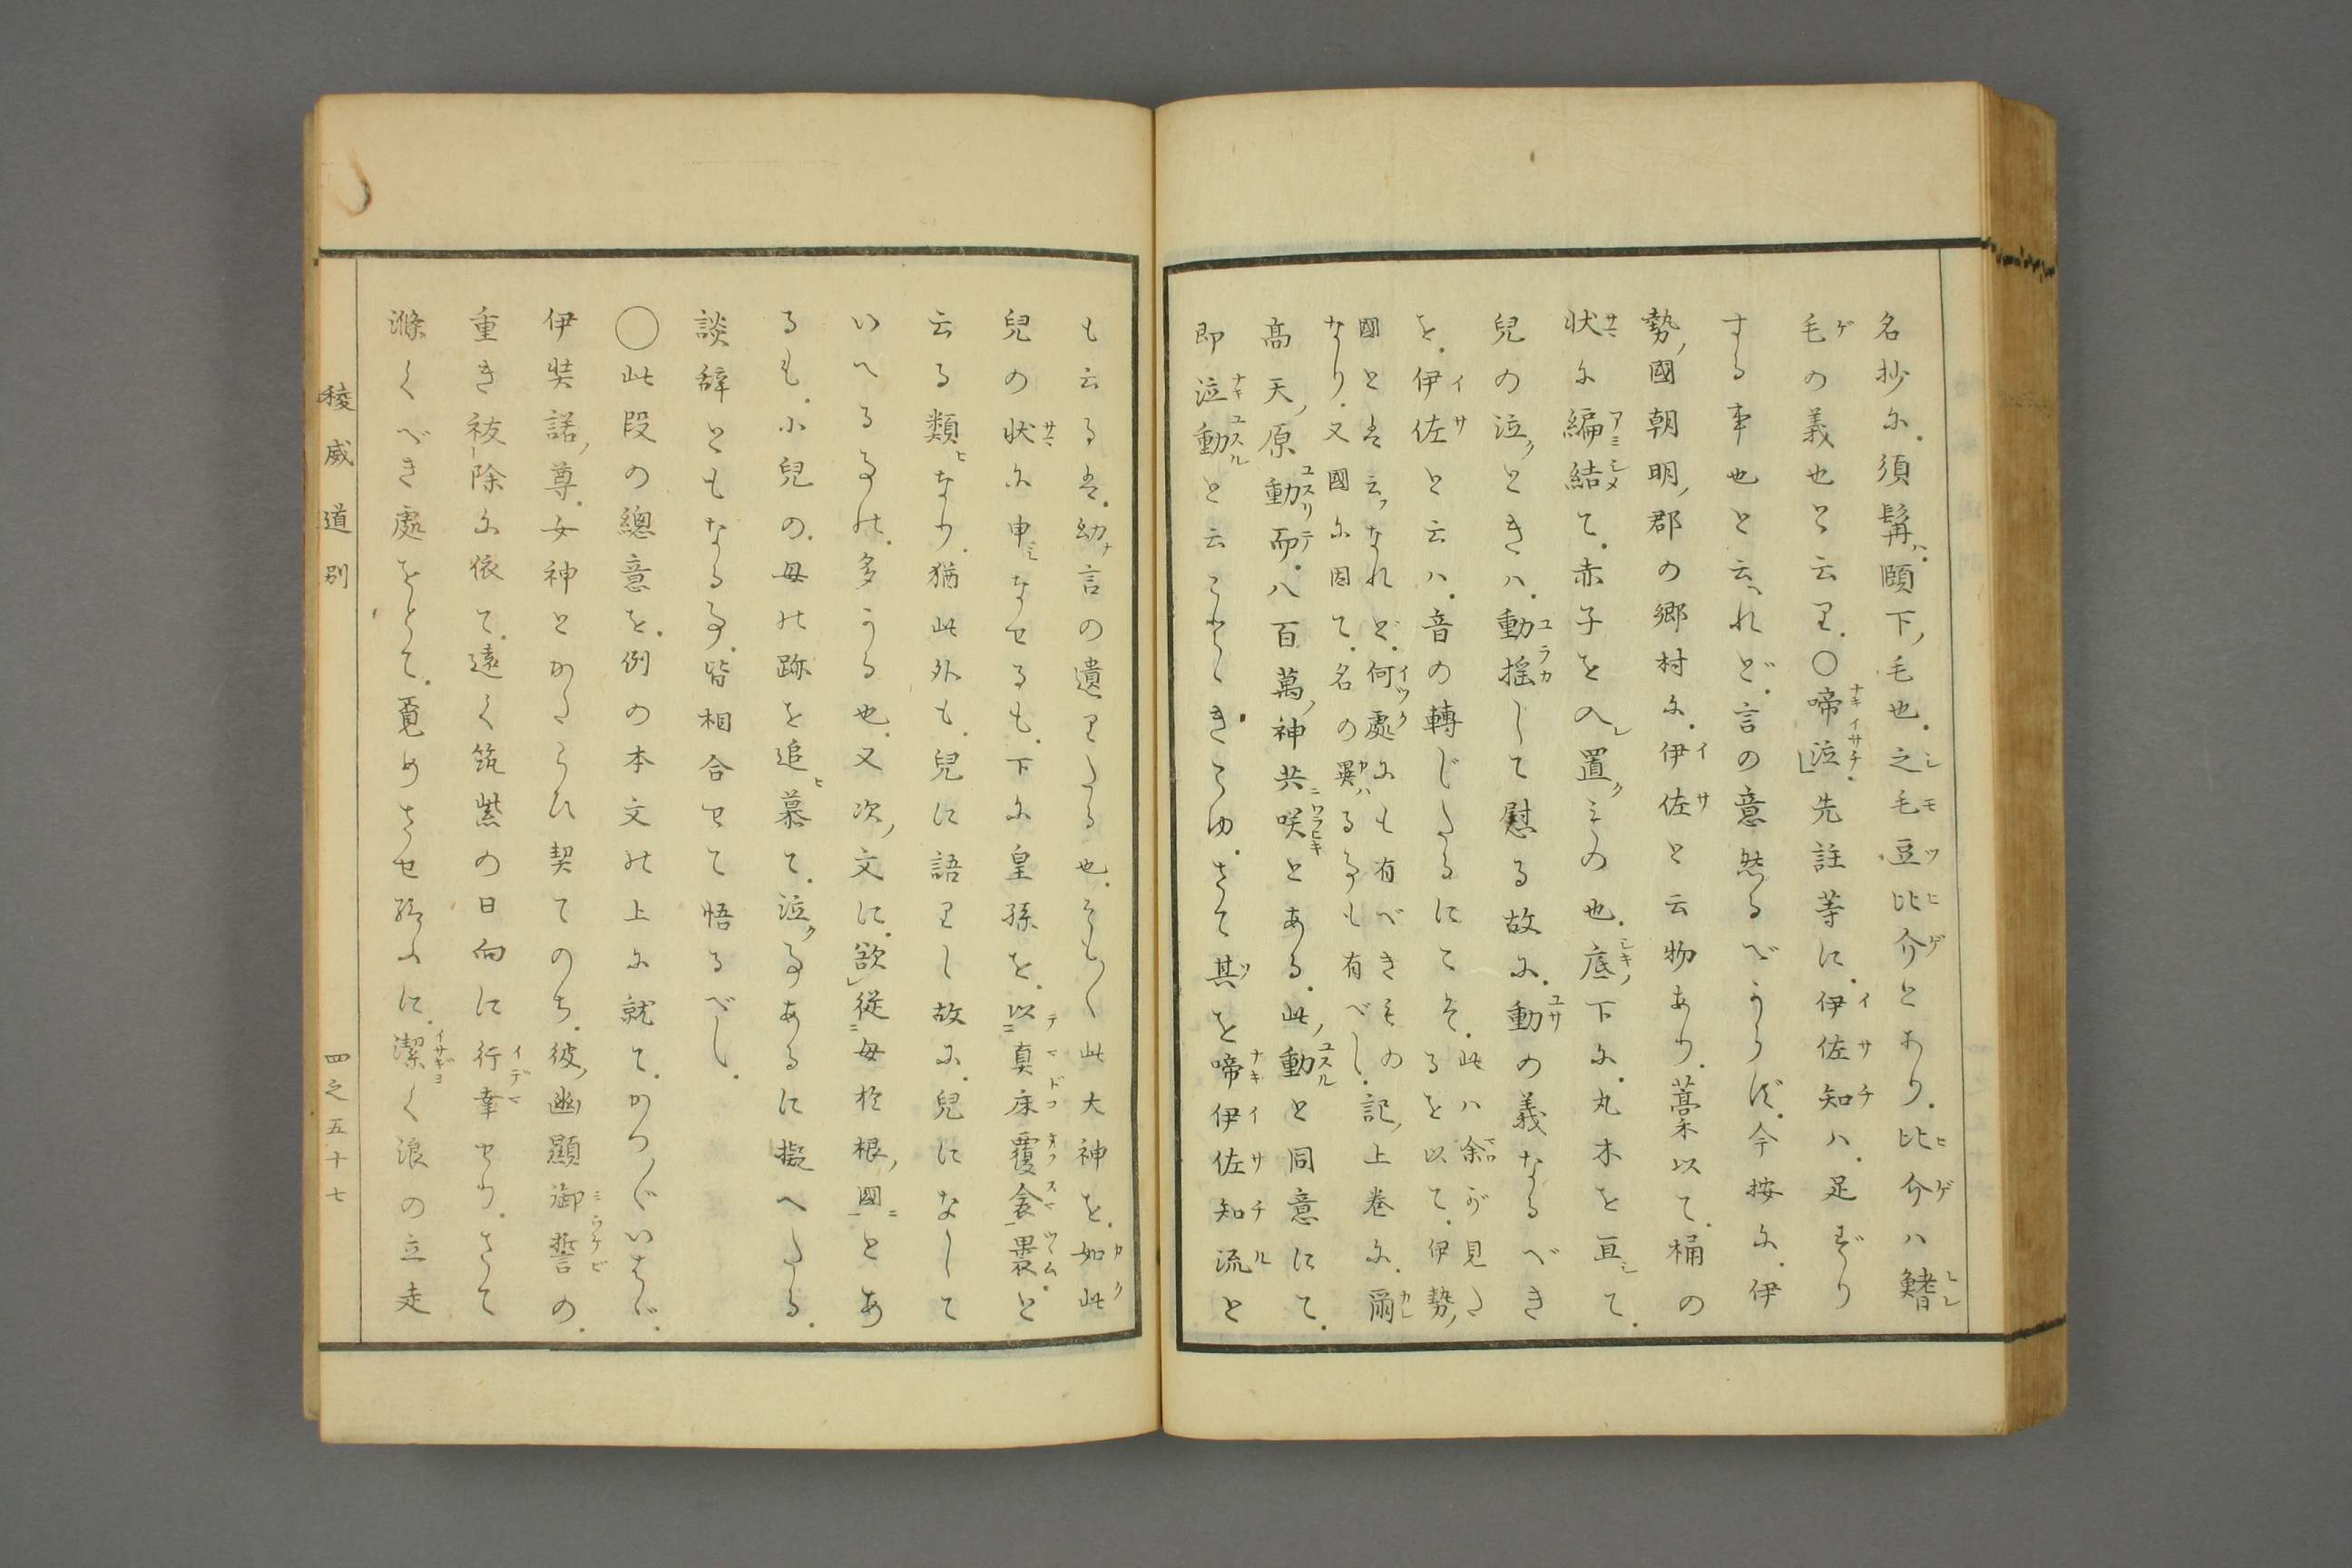 名抄に須髯ハ頤下ノ毛也之毛豆比介とあり比介ハ鰭
毛の義也と云り〇啼泣先註等に伊佐知ハ足ずり
する事也と云れど言の意然るべからず今按に伊
勢ノ國朝明ノ郡の郷村に伊佐と云物あり藁以て桶の
状に編結て赤子を入置くもの也底ノ下に丸木を亘して
兒の泣ときハ動搖して慰る故に動の義なるべき
を伊佐と云ハ音の轉じたるにこそ此ハ余が見た
るを以て伊勢ノ
國と云なれど何處にも有べきもの
なり又國に因て名の異る事も有べし記ノ上巻に爾
高天ノ原動而八百萬ノ神共咲とある此ノ動と同意にて
即泣動と云ことゝきこゆさて其を啼伊佐知流と
も云るは幼言の遺りたる也そも〳〵此大神を如此
兒の状に申なせるも下に皇孫を以真床覆衾裹と
云る類なり猶此外も兒に語りし故に兒になして
いへる事の多かる也又次ノ文に欲從母於根ノ國とあ
るも小兒の母の跡を追慕て泣事あるに擬へたる
談辞ともなる事皆相合せて悟るべし
〇此段の總意を例の本文の上に就てかつ〴〵いはゞ
伊奘諾ノ尊女神とかたらひ契てのち彼ノ幽顯御誓の
重き祓除に依て遠く筑紫の日向に行幸せりさて
滌くべき處をとて覓めさせ給ふに潔く浪の立走
稜威道別
四之五十七